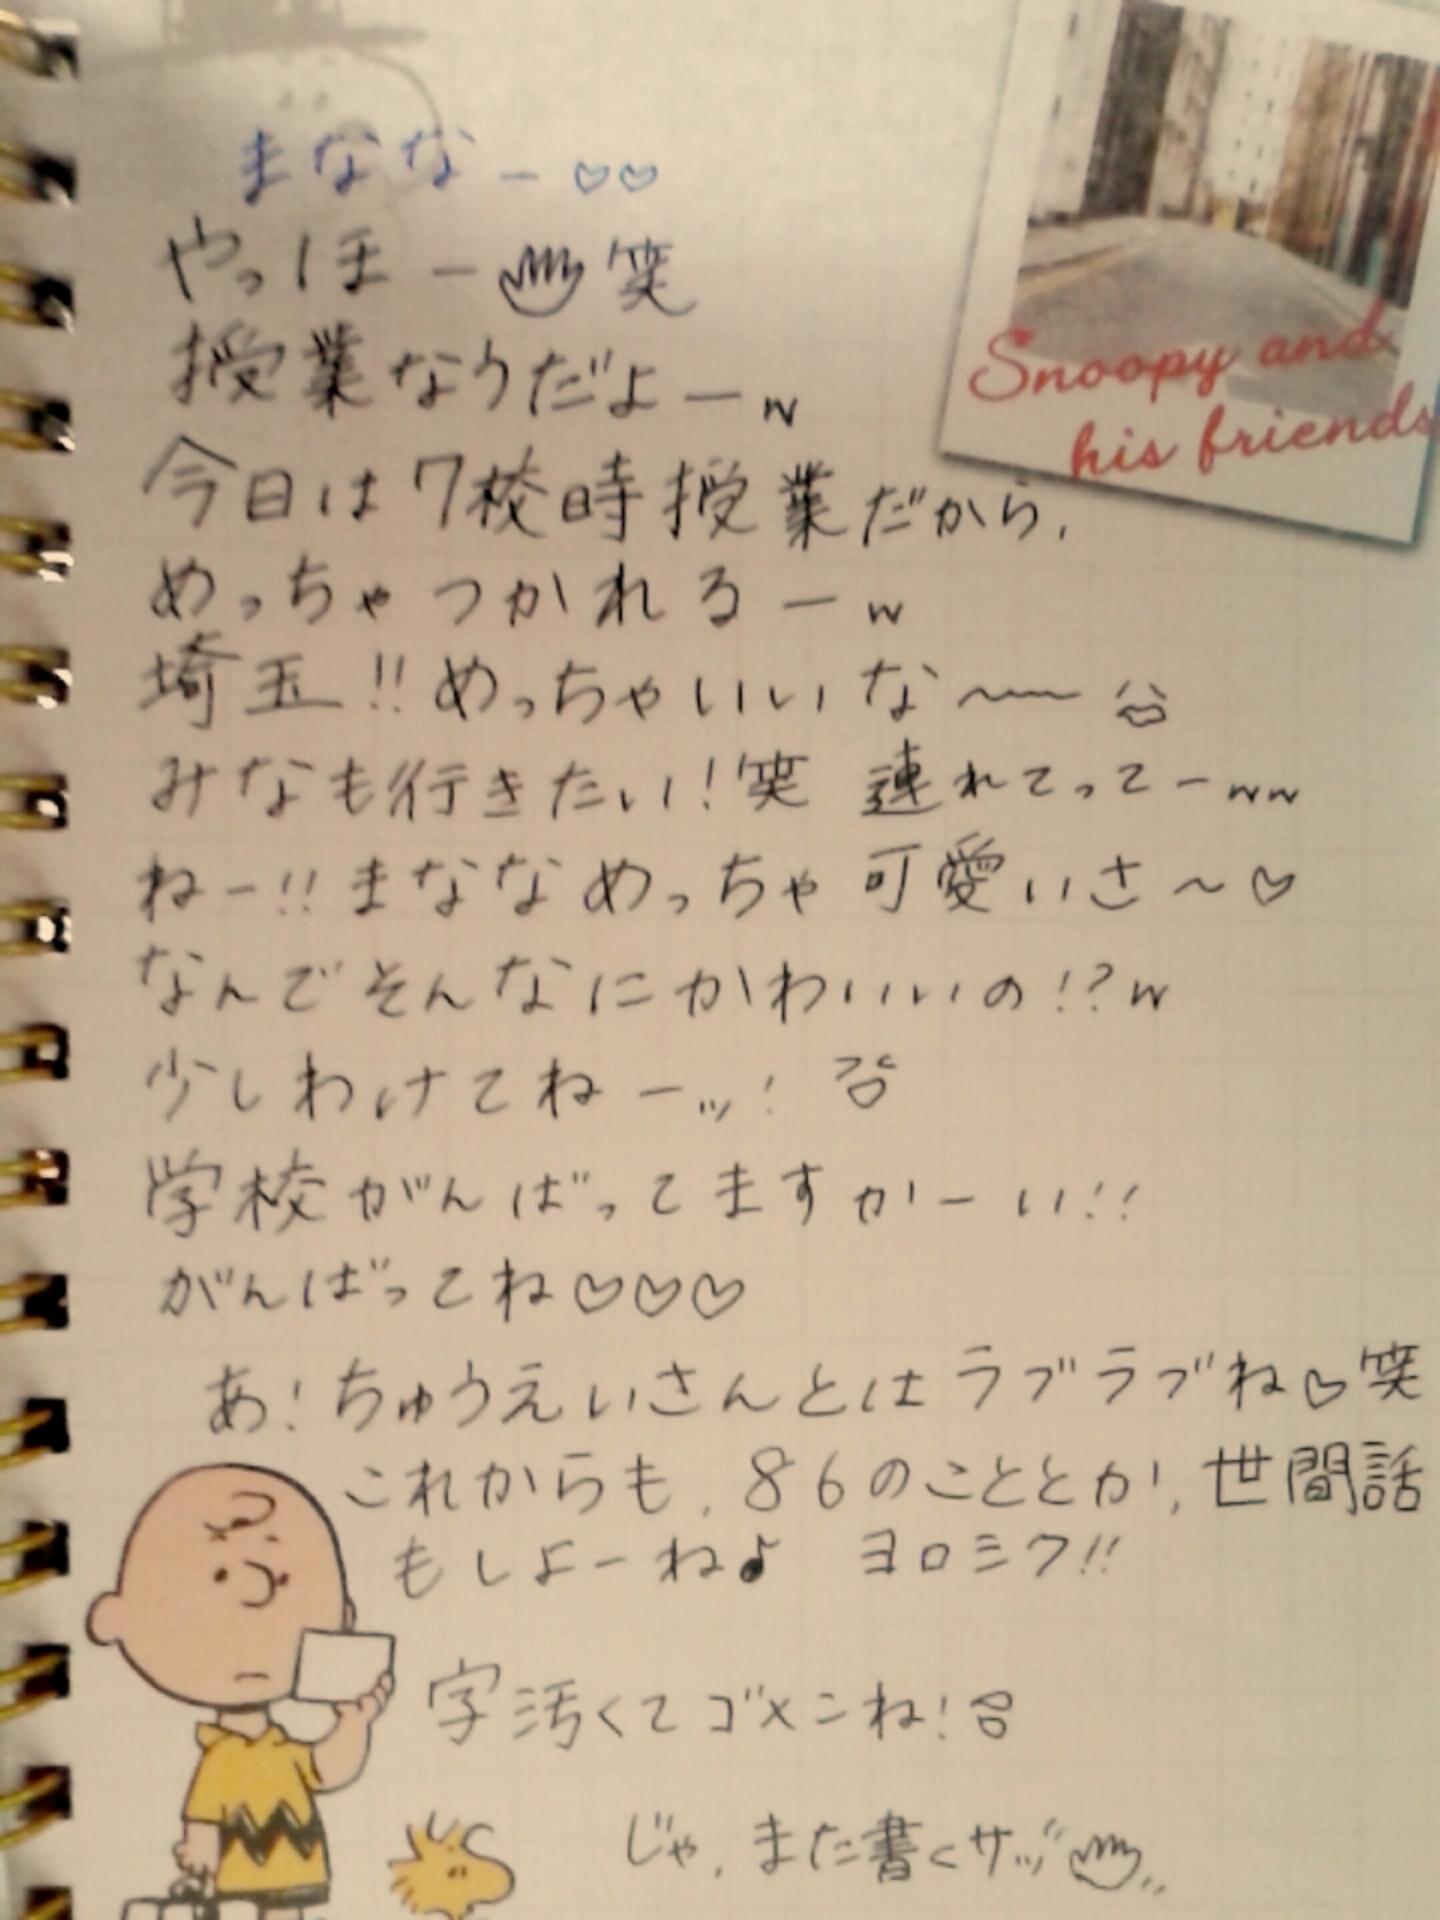 まななー♡♡
やっほー 笑
授業なうだよーw
Snoopy and
his friends
今日は7校時授業だから、
めっちゃつかれるーw
埼玉!!めっちゃいいな〜
みなも行きたい!笑 連れてってーww
ねー!!まななめっちゃ可愛いさ〜♡
なんでそんなにかわいいの!?w
少しわけてねーッ!
学校がんばってますかーい!!
がんばってね♡♡♡
あ!ちゅうえいさんとはラブラブね♡笑
これからも、86のこととか、世間話
もしよーね♪ ヨロシク!!
字汚くてゴメンね!
じゃ、また書くサッ